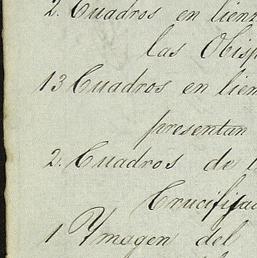 2. Cuadros en lien
las Obisp
13 Cuadros en lien
presentan
2. Cuadros de
Crucifi
1 Ymagen del